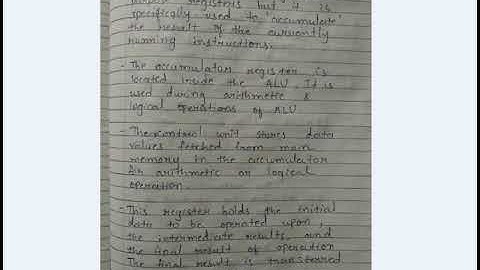 registers but it is
specifically used to accumulate
the result of the currently
running instructions.
- The accumulator register is
located inside the ALU. It is
used during arithmetic &
logical operations of ALU
- The control unit stores data
values fetched from main
memory in the accumulator
An arithmetic or logical
operation.
- This register holds the initial
data to be operated upon
the intermediate results, and
the final result of operation
The final result is transferred